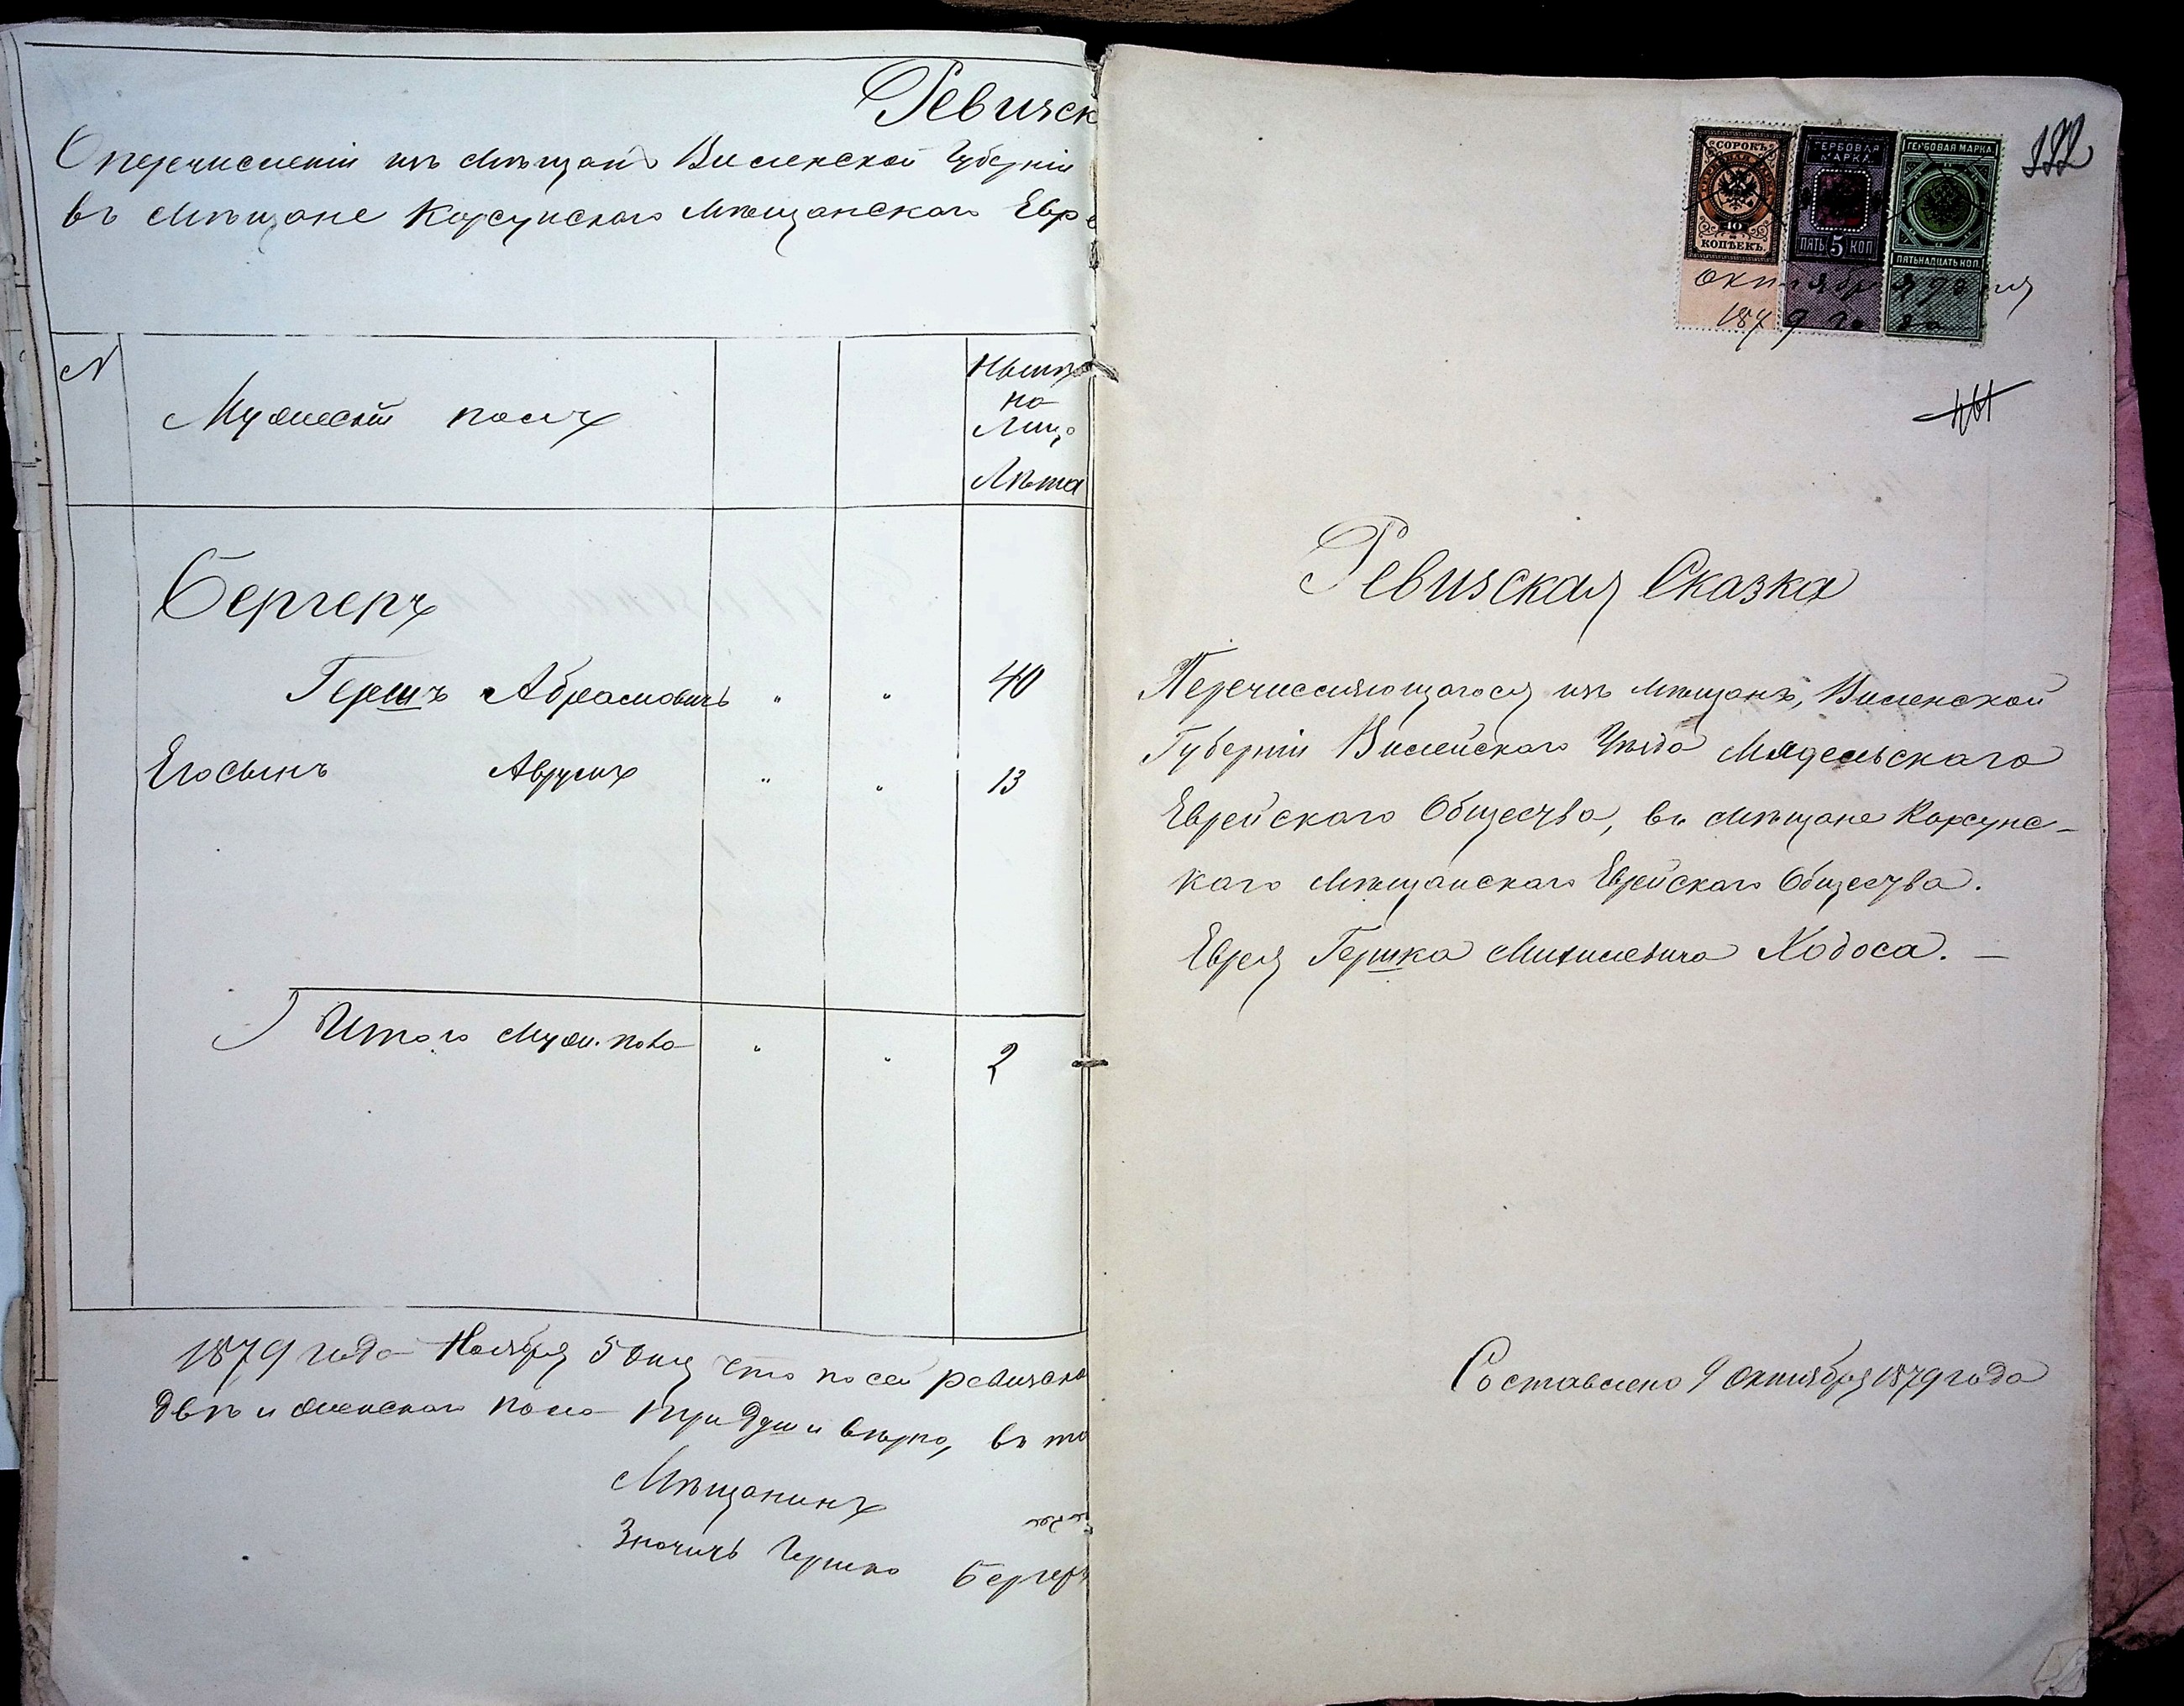 Ревизск
О перечисленіи изъ мѣщанъ Виленской Губерніи
въ мѣщане Корсунскаго Мѣщанскаго Евре
N
Мужескій полъ
Нынѣ
на
Лицо
Лѣта
Бергеръ
Гершъ Абрамовичъ " " 40
Его сынъ Аврумъ " " 13
Итого муж. пола " " 2
1879 года Ноября 5 дня что по сей ревизско
двѣ и женскаго пола три души вѣрно, въ то
Мѣщанинъ
Значитъ Гершко Бергеръ
122
СОРОКЪ
10
КОПѢЕКЪ.
ГЕРБОВАЯ
МАРКА
ПЯТЬ 5 КОП
ГЕРБОВАЯ МАРКА
ПЯТЬНАДЦАТЬ КОП
октября 9 дня
1879 года
Ревизская Сказка
Перечисляющагося изъ мѣщанъ, Виленской
Губерніи Вилейскаго Уѣзда Мядельскаго
Еврейскаго Общества, въ мѣщане Корсунс-
каго Мѣщанскаго Еврейскаго Общества.
Еврея Гершка Михилевича Ходоса. —
Составлено 9 Октября 1879 года